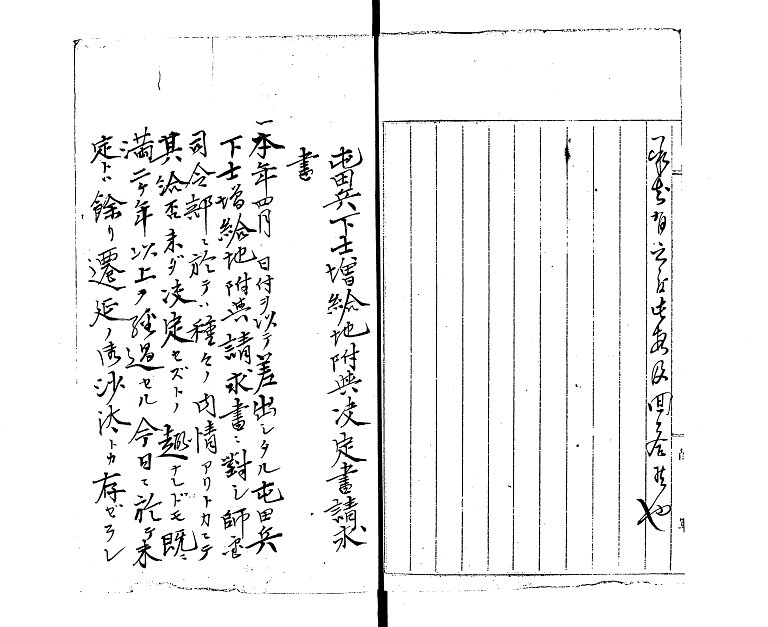 承知有之度此段及回答候也
屯田兵下士増給地附與决定書請求
書
一本年四月 日付ヲ以テ差出シタル屯田兵
下士増給地附與請求書ニ對シ師團
司令部ニ於テハ種々ノ内情アリトカニテ
其給否未ダ决定セズトノ趣ナレドモ既ニ
満二ケ年以上ヲ経過セル今日ニ於テ未
定トハ餘リ遷延ノ御沙汰トカ存ゼラレ